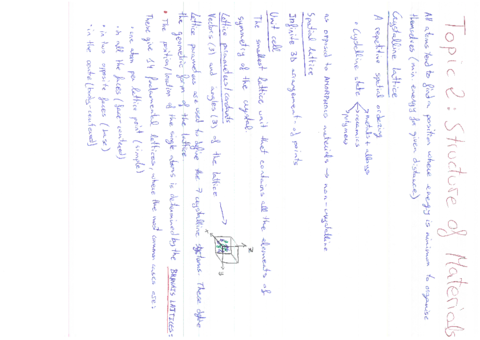 Topic 2: Structure of Materials
All atoms tend to find a position where energy is minimum to organise
themselves (min energy for given distance)
Crystalline lattice
A repetitive spatial ordering
• Crystalline state
metals & alloys
ceramics
polymers
as opposed to AMORPHOUS materials → non-crystalline
Spatial lattice
Infinite 3D arrangement of points
Unit cell
The smallest lattice unit that contains all the elements of
symmetry of the crystal
Lattice parameters/constants
Vectors (3) and angles (3) of the lattice
z
y
x
Lattice parameters are used to define the 7 crystalline systems. These define
the geometric form of the lattice.
• The position/location of the single atoms is determined by the BRAVAIS LATTICES:
There are 14 fundamental lattices, where the most common ones are:
• one atom per lattice point (simple)
• in all the faces (face-centered)
• in two opposite faces (base)
• in the centre (body-centered)